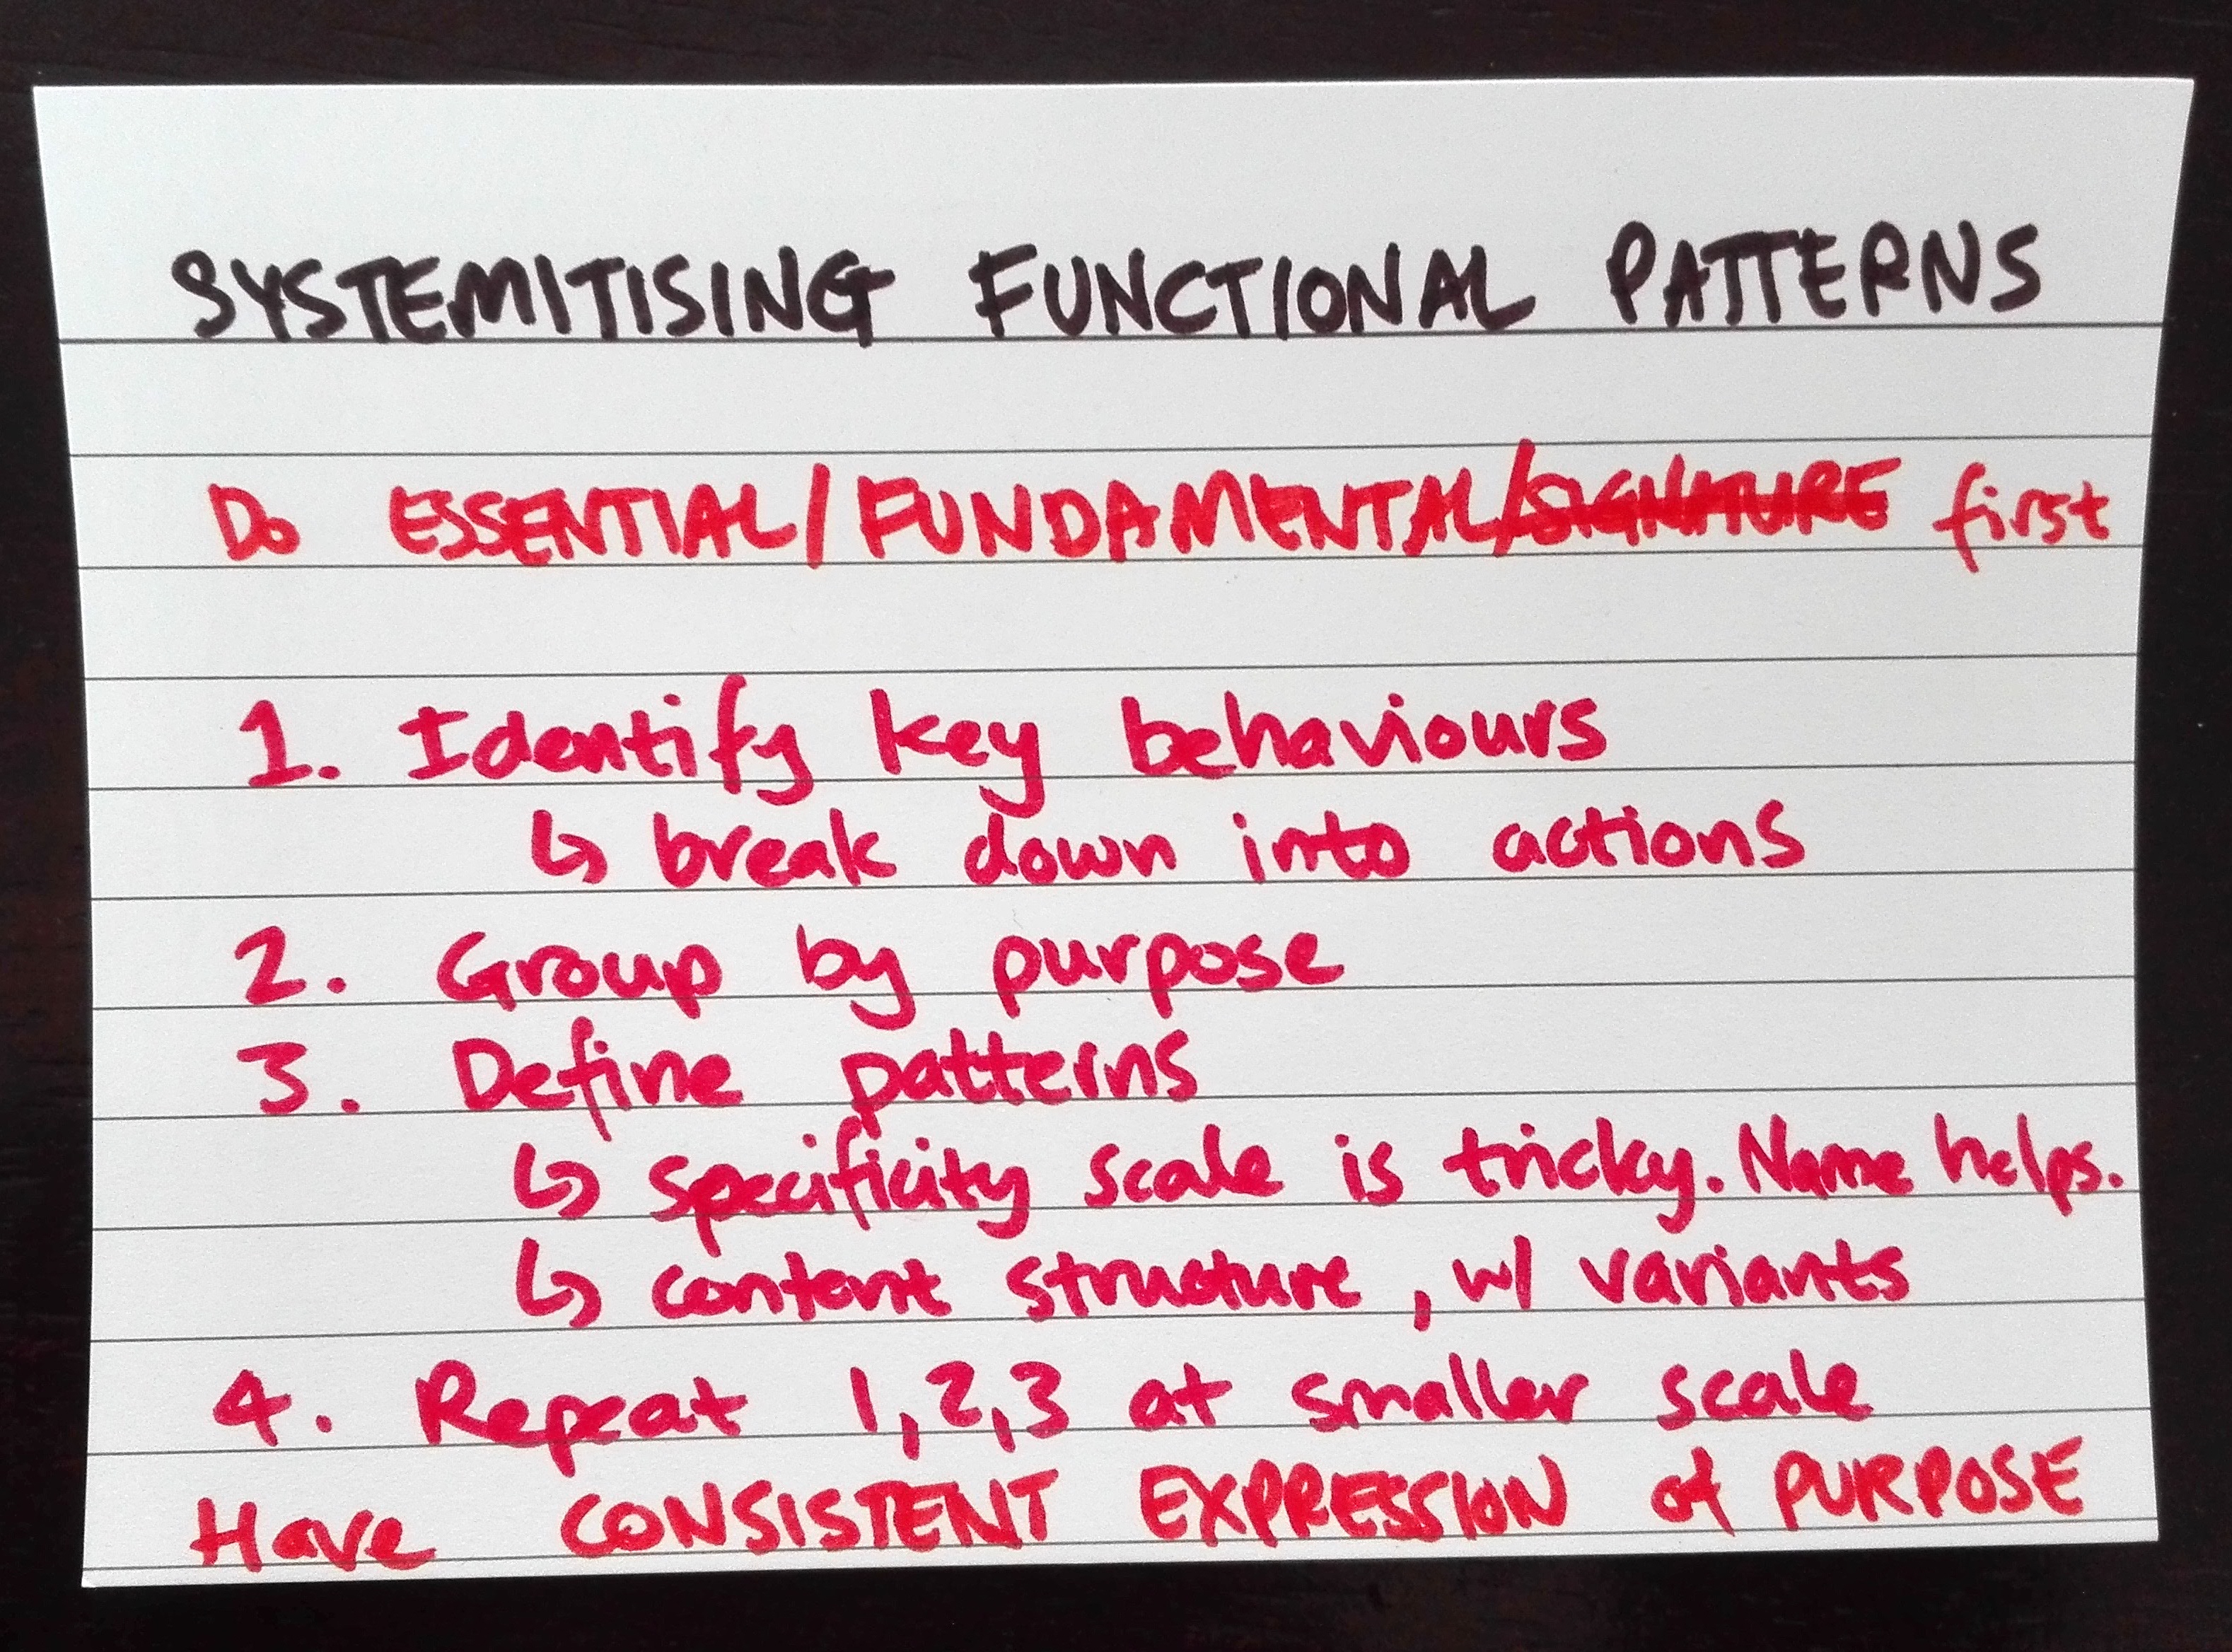 SYSTEMITISING FUNCTIONAL PATTERNS
Do ESSENTIAL/FUNDAMENTAL/SIGNATURE first
1. Identify key behaviours
↳ break down into actions
2. Group by purpose
3. Define patterns
↳ specificity scale is tricky. Name helps.
↳ content structure, w/ variants
4. Repeat 1,2,3 at smaller scale
Have CONSISTENT EXPRESSION of PURPOSE